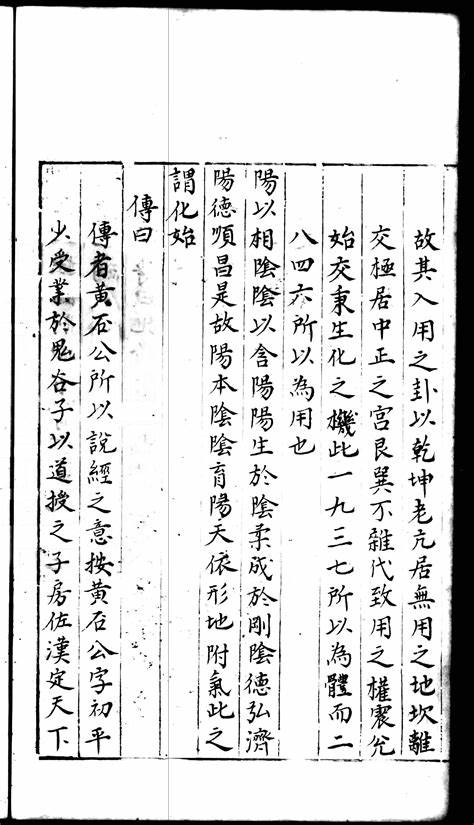 故其入用之卦以乾坤老亢居無用之地坎離
交極居中正之宮艮巽不雜代致用之權震兊
始交秉生化之機此一九三七所以為體而二
八四六所以為用也
陽以相陰陰以含陽陽生於陰柔成於剛陰德弘濟
陽德順昌是故陽本陰陰育陽天依形地附氣此之
謂化始
傳曰
傳者黄石公所以說經之意按黄石公字初平
少受業於鬼谷子以道授之子房佐漢定天下